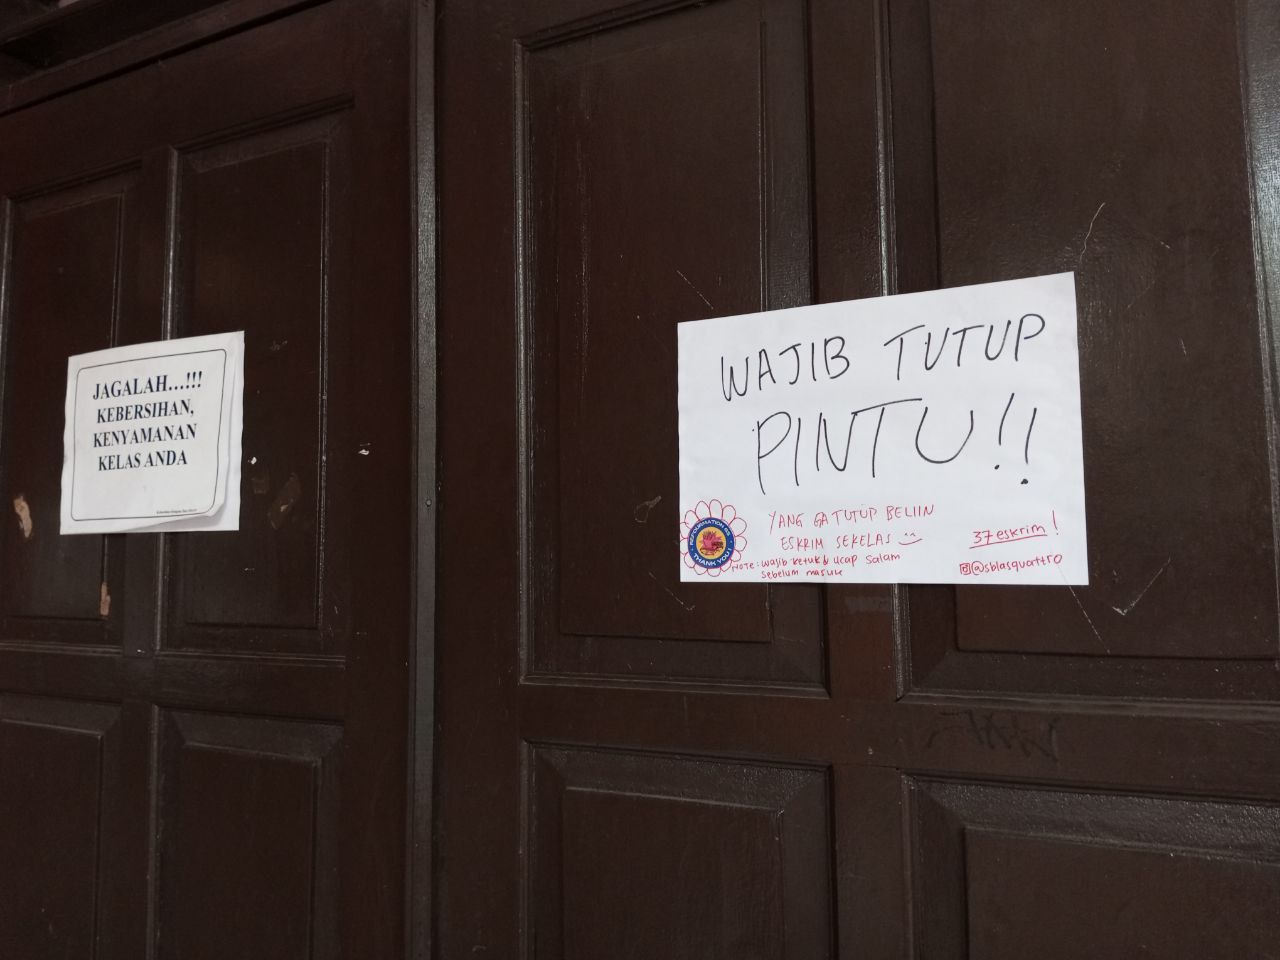 JAGALAH...!!!
KEBERSIHAN,
KENYAMANAN
KELAS ANDA
WAJIB TUTUP
PINTU!!
YANG GA TUTUP BELIIN
ESKRIM SEKELAS
37 eskrim!
NOTE: wajib ketuk & ucap salam
sebelum masuk
@sblasquattro
THANK YOU!